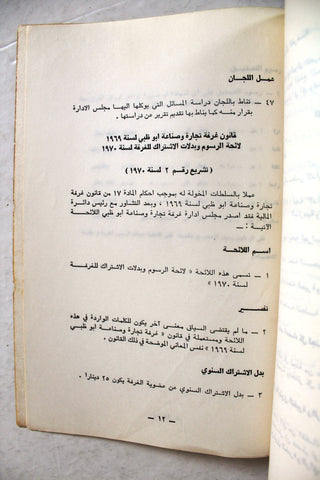 عمـل اللجـان
٤٧ — تناط باللجان دراسة المسائل التي يوكلها اليها مجلس الادارة
بقرار منـه كما يناط بها تقديم تقرير عن دراستها .
قانون غرفة تجارة وصناعة ابو ظبي لسنة ١٩٦٩
لائحة الرسوم وبدلات الاشتراك للغرفة لسنة ١٩٧٠
( تشريع رقم ٢ لسنة ١٩٧٠ )
عملا بالسلطات المخولة له بموجب احكام المادة ١٧ من قانون غرفة
تجارة وصناعة ابو ظبي لسنة ١٩٦٩ ، وبعد التشاور مع رئيس دائـرة
المالية فقد اصدر مجلس ادارة غرفة تجارة وصناعة ابو ظبي اللائحـة
الاتيـة : ـ
اسم اللائحة
١ — تسمى هذه اللائحة « لائحة الرسوم وبدلات الاشتراك للغرفـة
لسنة ١٩٧٠ »
تفسير
٢ — ما لم يقتضى السياق معنـى آخر يكون للكلمات الواردة في هذه
اللائحة ومستعملة في قانون « غرفة تجارة وصناعة ابـو ظبـي
لسنة ١٩٦٩ » نفس المعاني الموضحة في ذلك القانون .
بدل الاشتراك السنوي
٣ — بدل الاشتراك السنوي عن عضوية الغرفة يكون ٢٥ دينارا .
— ١٢ —